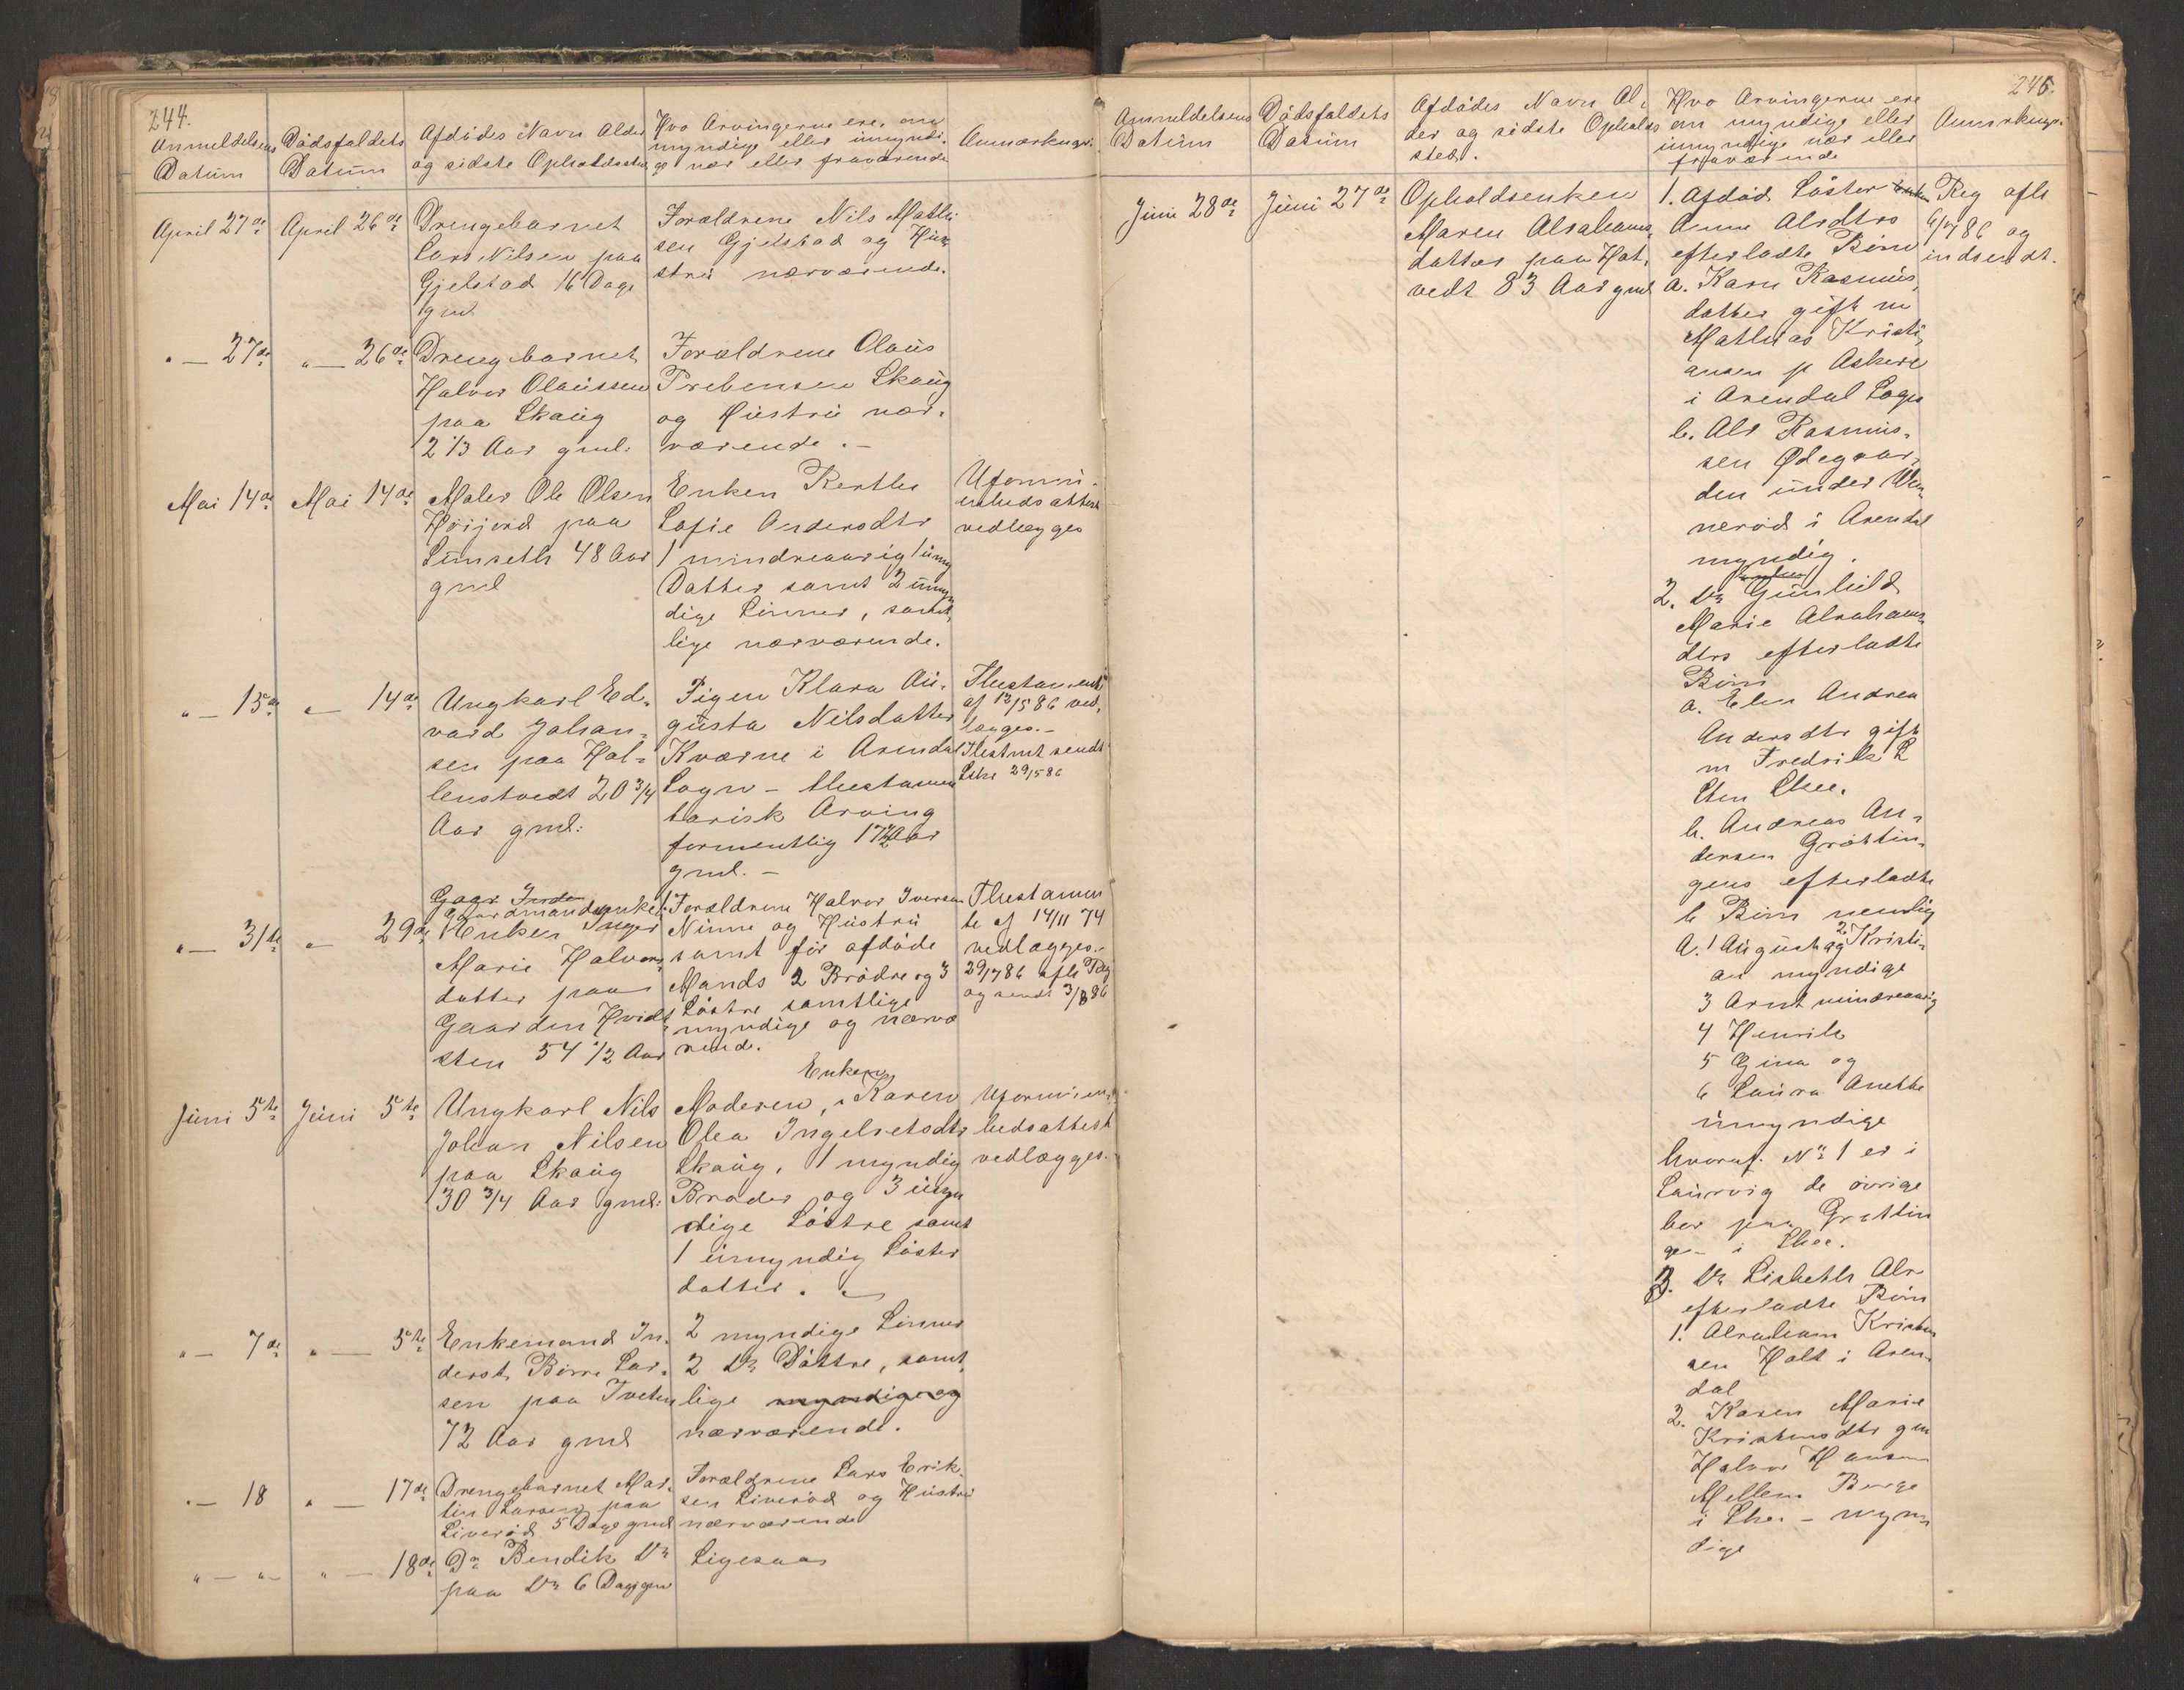 244.
Anmeldelsens Datum
Dødsfaldets Datum
Afdødes Navn Alder
og sidste Opholdssted
Hvo Arvingerne ere, om
myndige eller umyndi-
ge nær eller fraværende
Anmærkning.
April 27de
April 26de
Drengebarnet
Lars Nilsen paa
Gjelstad 16 Dage
gml.
Forældrene Nils Mathi
sen Gjelstad og Hu-
stru nærværende.
" — 27de
" — 26de
Drengebarnet
Halvor Olaussen
paa Skaug
2 1/3 Aar gml.
Forældrene Olaus
Prebensen Skaug
og Hustru nær-
værende. —
Mai 14de
Mai 14de
Maler Ole Olsen
Høijord paa
Lunseth 48 Aar
gml
Enken Berthe
Sofie Andersdtr
1 mindreaarig / umy
Datter samt 2 umyn
dige Sønner, samt-
lige nærværende.
Uformu-
enhedsattest
vedlægges
" — 15de
" — 14de
Ungkarl Ed-
vard Johan-
sen paa Hal-
lenstvedt 20 3/4
Aar gml.
Pigen Klara Au-
gusta Nilsdatter
Kværne i Arendal
Sogn — thestamen
tarisk Arving
formentlig 17 1/2 Aar
gml. —
Thestament
af 13/5 86 ved-
lægges. —
Thestmt sendt
Skr 29/5 86
" — 31te
" — 29de
Gaardmandsenke
Enken Inger
Marie Halvors-
datter paa
Gaarden Hvidt-
sten 54 1/2 Aar
Forældrene Halvor Iversen
Ninne og Hustru
samt før afdøde
Mands 2 Brødre og 3
Søstre samtlige
myndige og nærvæ
rende.
Thestamen
te af 14/11 74
vedlægges.
29/7 86 afh Reg
og sendt 3/8 86
Juni 5te
Juni 5te
Ungkarl Nils
Johan Nilsen
paa Skaug
30 3/4 Aar gml:
Enken
Moderen, Karen
Olea Ingebretsdtr
Skaug, 1 myndig
Broder og 3 umyn
dige Søstre samt
1 umyndig Søster
datter.
Uformuen-
hedsattest
vedlægges.
" — 7de
" — 5te
Enkemand In-
derst Børre Lar-
sen paa Tveten
72 Aar gml
2 myndige Sønner
2 Do Døttre, samt
lige myndige og
nærværende.
" — 18
" — 17de
Drengebarnet Mar-
tin Larsen paa
Liverød 5 Dage gml
Forældrene Lars Erik-
sen Liverød og Hustru
nærværende
" — " —
" — 18de
Do Bendik Do
paa Do 6 Dage gm
Ligesaa
245.
Anmeldelsens
Datum
Dødsfaldets
Datum
Afdødes Navn Al-
der og sidste Opholds
sted.
Hvo Arvingerne ere
om myndige eller
umyndige nær eller
fraværende
Anmrkngr.
Juni 28de
Juni 27de
Opholdsenken
Maren Abrahams-
datter paa Hot-
vedt 83 Aar gml
1. Afdød Søster
Anne Absdtrs
efterladte Børn
a. Karn Rasmus-
datter gift m
Mathias Kristi-
ansen p Askere
i Arendal Sogn
b. Abr Rasmus-
sen Ødegaar-
den under Wen
nerød i Arendal
myndig.
2. Do Gunhild
Marie Abrahams-
dtrs efterladte
Børn
a. Elen Andrea
Andersdtr gift
m Fredrik
b. Andreas An-
dersen Grøttin-
gens efterladte
6 Børn nemlig
A. 1 August og 2 Kristi-
an myndige
3 Arnt mindreaarig
4 Henrik
5 Gina og
6 Laura Anette
umyndige
hvoraf No 1 er i
Laurvig de øvrige
bor paa Grøttin
gen i
3. Do Lisbeth Abr
efterladte Børn
1. Abraham Kristen
sen Holt i Aren-
dal
2. Karen Marie
Kristensdtr gm
Halvor Hansen
Mellem Berge
i — myn-
dige
Reg afh
6/7 86 og
indsendt.